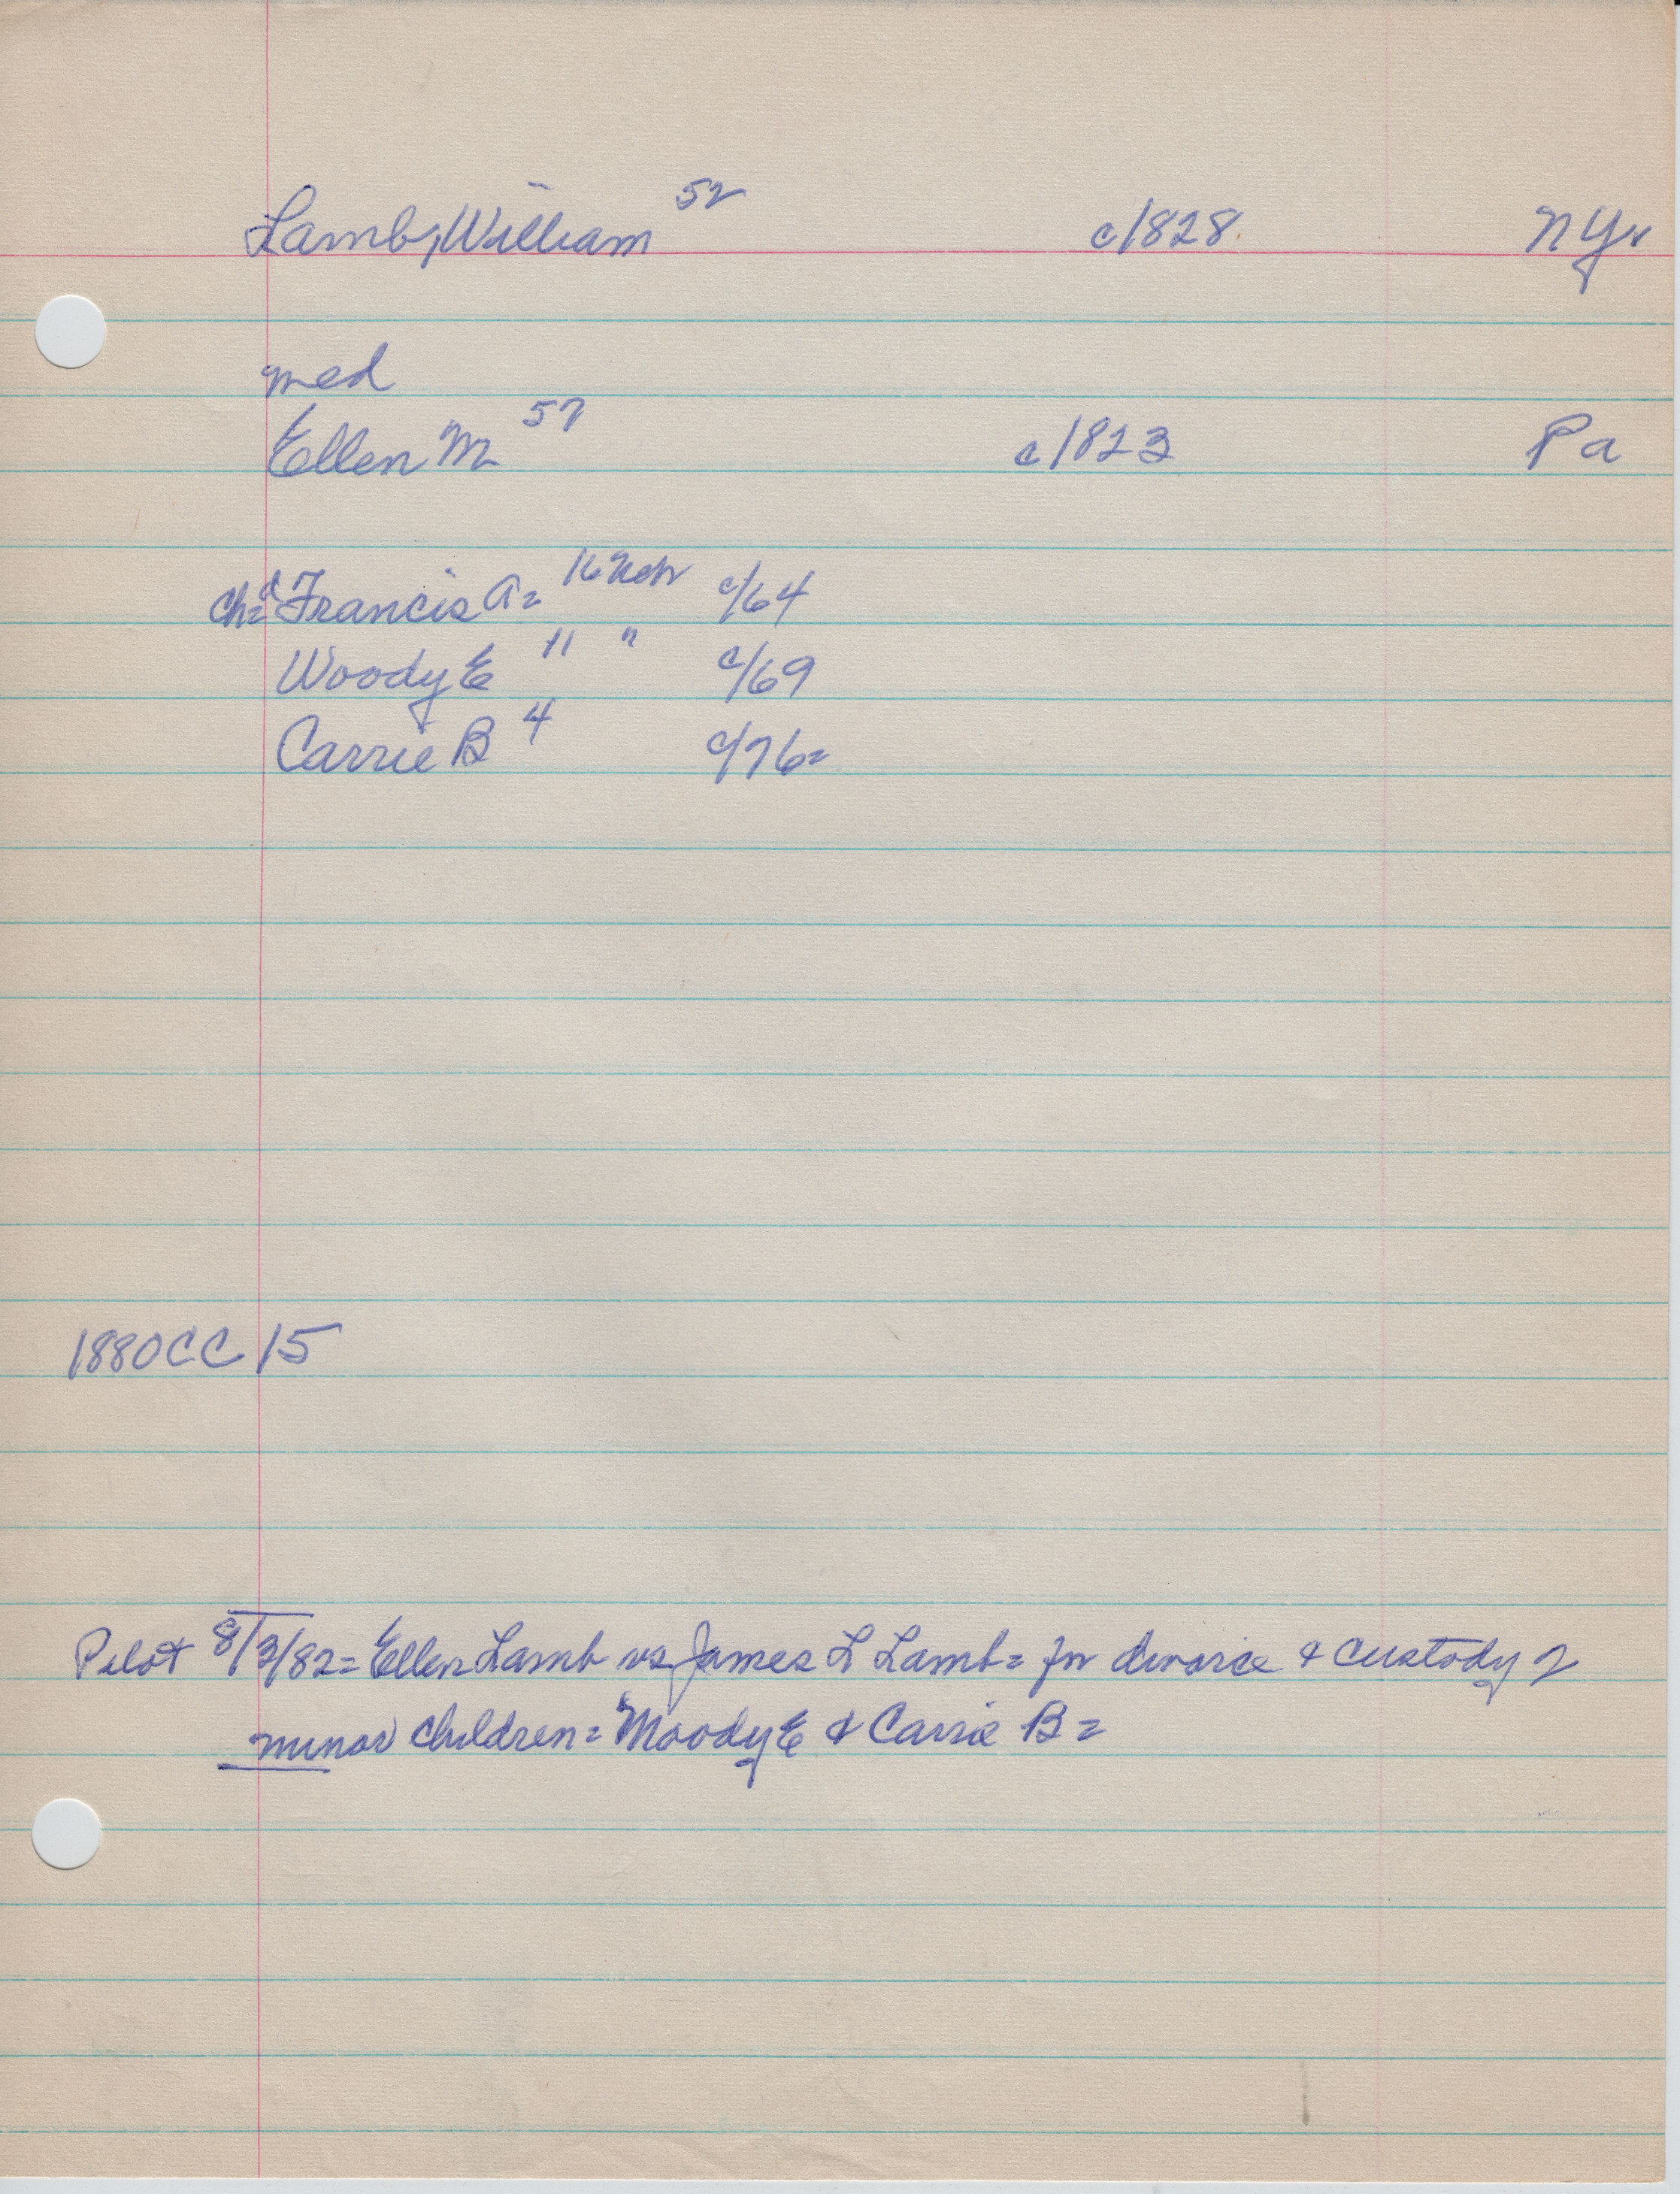 Lamb, William 52 c/1828 NY
med
Ellen M 57 c/1823 Pa
Ch= Francis A= 16 Neb c/64
Woody E 11 " c/69
Carrie B 4 c/76=
1880CC 15
Pilot 8/3/82= Ellen Lamb vs James L Lamb= for divorce & custody 2
minor children= Moody E & Carrie B=